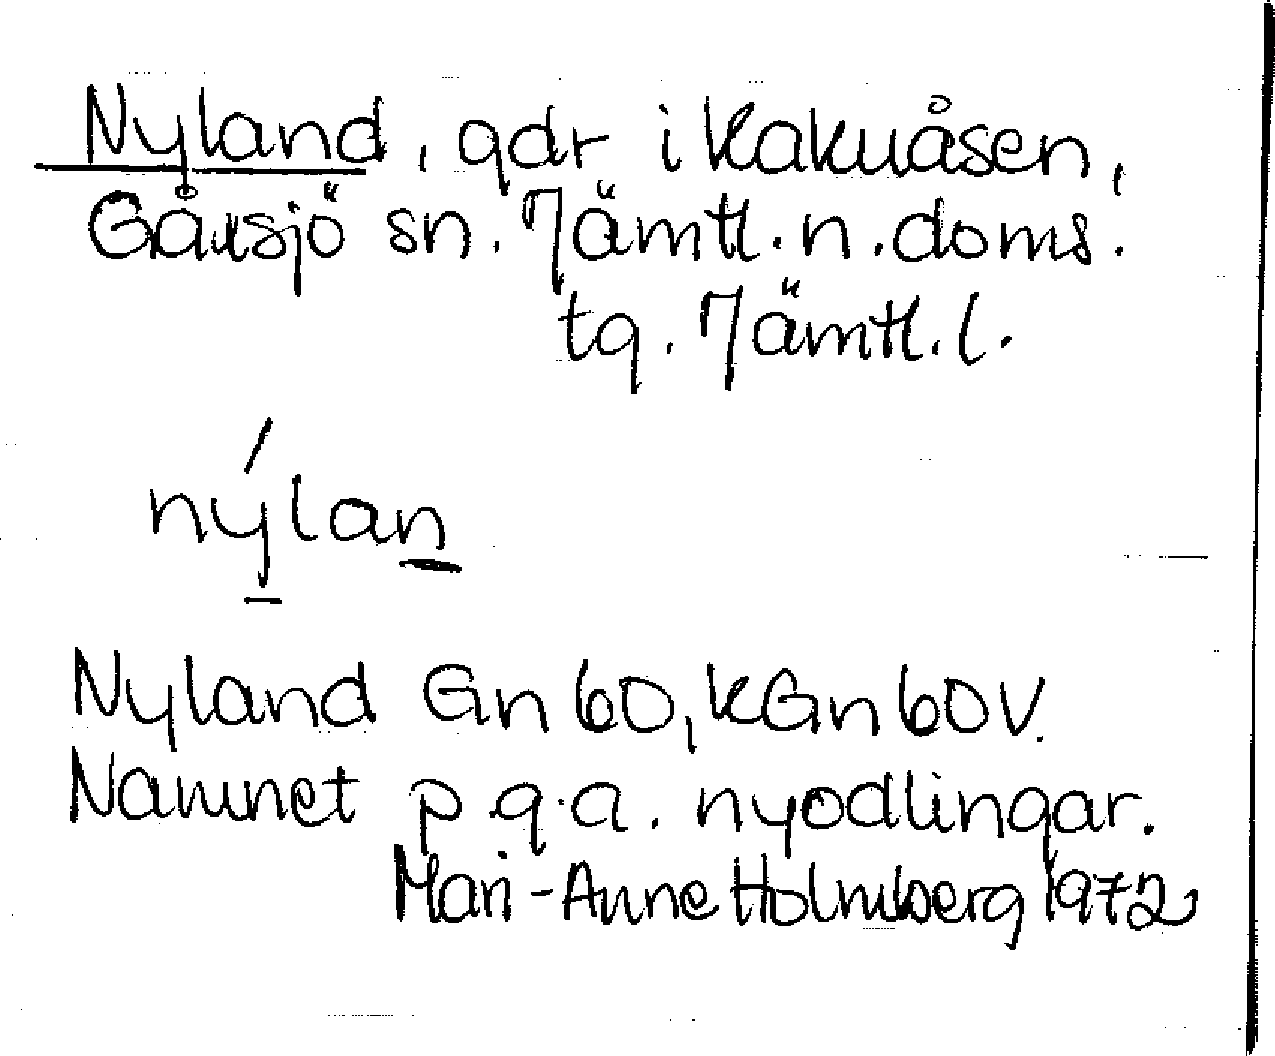 Nyland, gdr i Kakuåsen,
Gåxsjö sn. Jämtl. n. doms.
tg. Jämtl. l.
nýlan
Nyland Gn 60, kGn 60 V.
Namnet p g. a. nyodlingar.
Mari-Anne Holmberg 1972